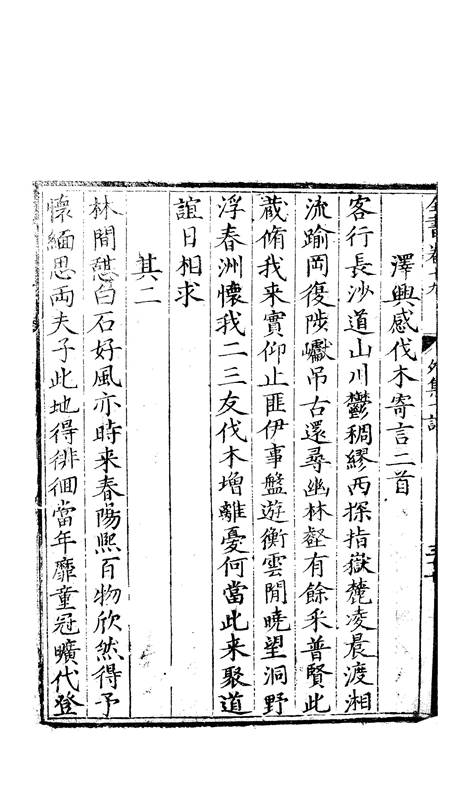 全書卷十九 外集一 詩
澤興感伐木寄言二首
客行長沙道山川鬱稠繆西探指嶽麓凌晨渡湘
流踰岡復陟巘吊古還尋幽林壑有餘采昔賢此
藏脩我来實仰止匪伊事盤遊衡雲閒曉望洞野
浮春洲懷我二三友伐木增離憂何當此来聚道
誼日相求
其二
林間憇白石好風亦時来春陽熈百物欣然得予
懷緬思兩夫子此地得徘徊當年靡童冠曠代登